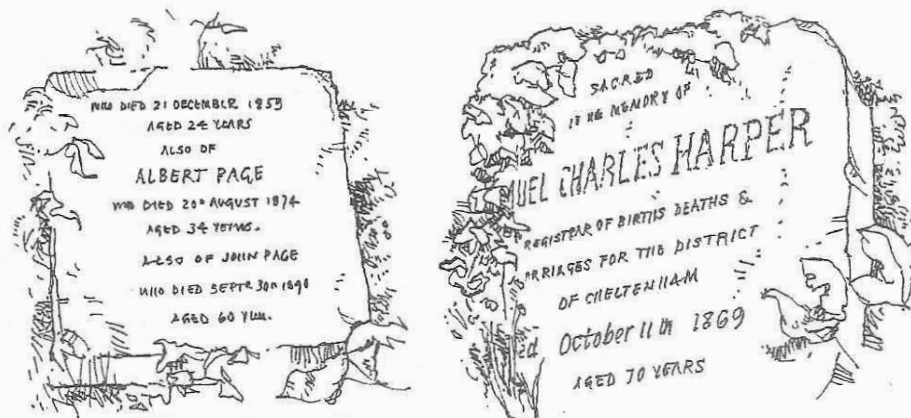 WHO DIED 21 DECEMBER 1859
AGED 24 YEARS
ALSO OF
ALBERT PAGE
WHO DIED 20th AUGUST 1874
AGED 34 YEARS.
ALSO OF JOHN PAGE
WHO DIED SEPTR 30th 1890
AGED 60
SACRED
MEMORY OF
MUEL CHARLES HARPER
REGISTRAR OF BIRTHS DEATHS &
ARRIAGES FOR THE DISTRICT
OF CHELTENHAM
ed October 11th 1869
AGED 70 YEARS